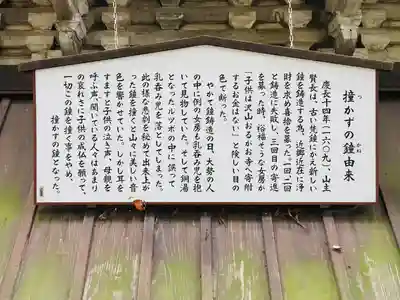 撞かずの鐘由来
慶長十四年(一六〇九)、山主
賢長は、古い梵鐘にかえ新しい
鐘を鋳造する為、近郷近在に浄
財を求め喜捨を募った。一回二回
と鋳造に失敗し、三回目の寄進
を募った時、裕福そうな女房が
「子供は沢山おるがお寺へ寄附
するお金はない」と険しい目の
色で断った。
やがて鐘鋳造の日、大勢の人
の中に例の女房も乳呑み児を抱
いて見物していた。そして銅湯
となったルツボの中に誤って
乳呑み児を落としてしまった。
此の様な悪刻を秘めて出来上が
った鐘を撞くと次々に美しい音
色を響かせていた。しかし耳を
すますと子供の泣き声、母親を
呼ぶ声。聞いている人々はあまり
の哀れさに子供の成仏を願って、
一切この鐘を撞く事をやめ、
撞かずの鐘となった。